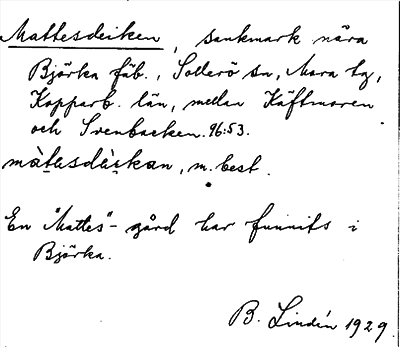 Mattesdeiken, sankmark nära
Björka fäb., Sollerö sn, Mora tg,
Kopparb. län, mellan Käftmoren
och Svenbacken. 96:53.
màtẹsdàịskan, m. best.
En "Mattes"-gård har funnits i
Björka.
B. Lindén 1929.